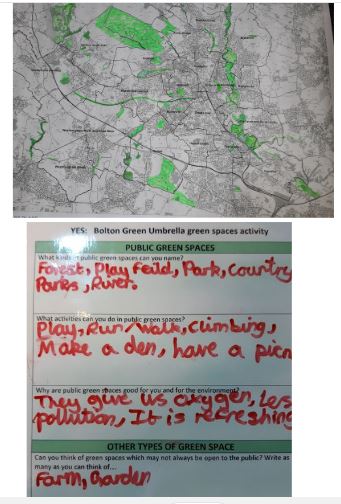 YES: Bolton Green Umbrella green spaces activity
PUBLIC GREEN SPACES
What kinds of public green spaces can you name?
Forest, Play Feild, Park, Country
Parks, River.
What activities can you do in public green spaces?
Play, Run/walk, climbing,
Make a den, have a picn
Why are public green spaces good for you and for the environment?
They give us oxygen, Les
pollution, It is refreshing
OTHER TYPES OF GREEN SPACE
Can you think of green spaces which may not always be open to the public? Write as
many as you can think of...
Farm, Garden